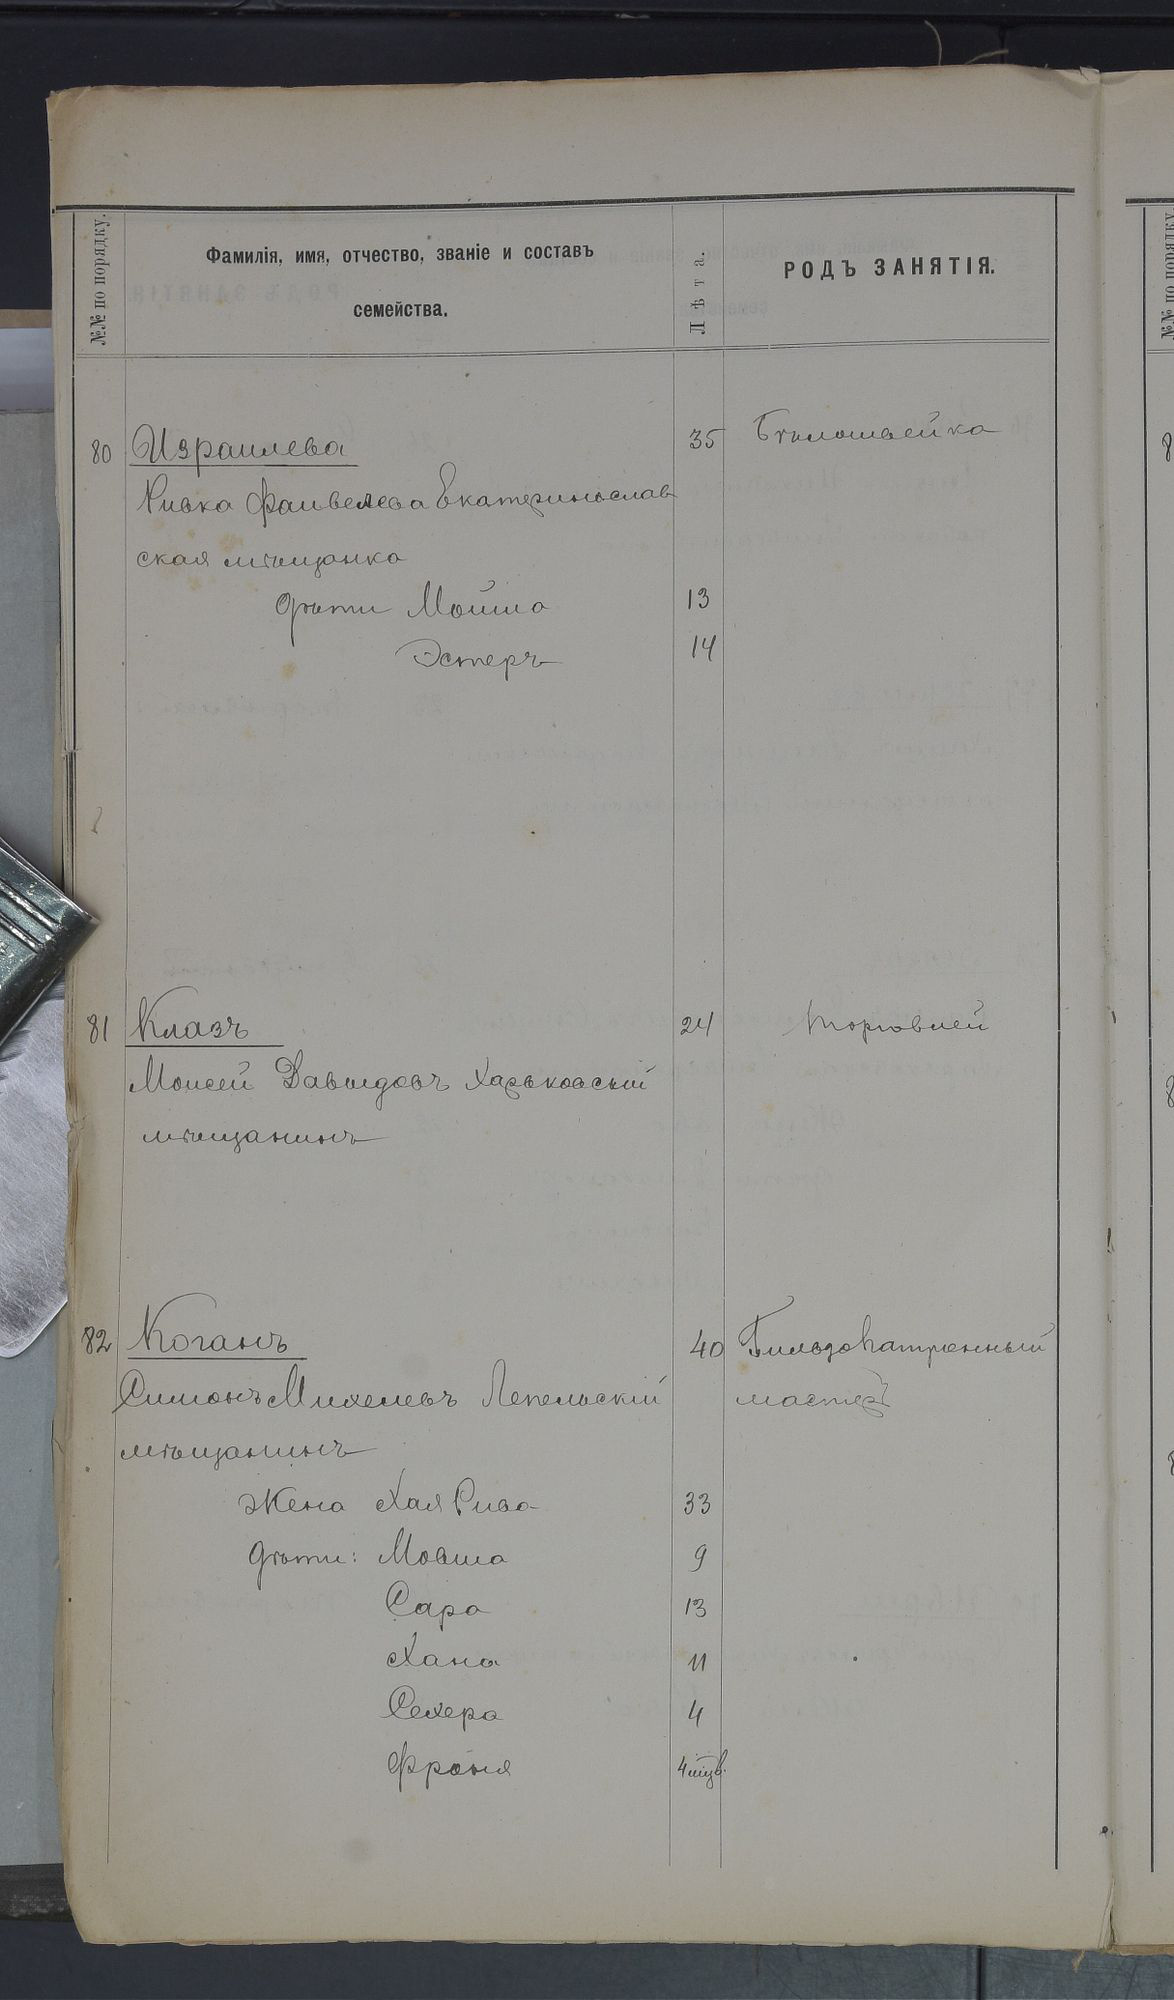 №№ по порядку.
Фамилія, имя, отчество, званіе и составъ
семейства.
Лѣта.
РОДЪ ЗАНЯТІЯ.
80 Израилева 35 Бѣлошвейка
Ривка Фаивелева Екатеринослав
ская мѣщанка
дѣти Мойша 13
Эстеръ 14
81 Клазъ 24 торговлей
Моисей Давыдовъ Харьковскій
мѣщанинъ
82 Коганъ 40 Гильзопатронный
Симонъ Михелевъ Лепельскій мастеръ
мѣщанинъ
Жена Хая Рива 33
дѣти: Мовша 9
Сара 13
Хана 11
Сехера 4
Фрэня
№№ по порядку